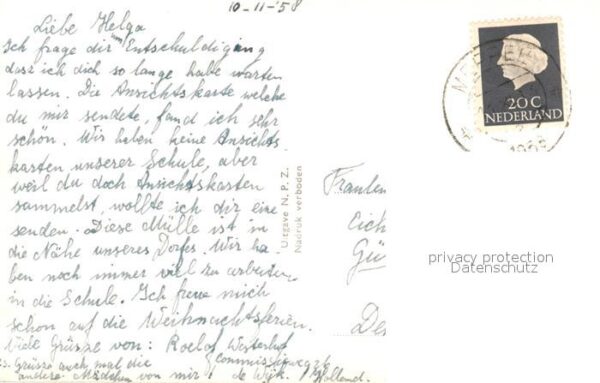 10-11-'58
Liebe Helga
Ich frage dir um Entschuldigung
dasz ich dich so lange habe warten
lassen. Die Ansichtskarte welche
du mir sendete, fand ich sehr
schön. Wir haben keine Ansichts
karten unserer Schule, aber
weil du doch Ansichtskarten
sammelst, wollte ich dir eine
senden. Diese Mülle ist in
die Nähe unseres Dorfes. Wir ha-
ben noch immer viel zu arbeiten
in die Schule. Ich freue mich
schon auf die Weihnachtsferien.
Viele Grüsze von: Roelof Westerhof
Commissieweg 26
de Wijk. Holland.
Grüsze auch mal die
andere Mädchen von mir!
Uitgave N. P. Z.
Nadruk verboden
20 C
NEDERLAND
Eich
Gü
De
privacy protection
Datenschutz